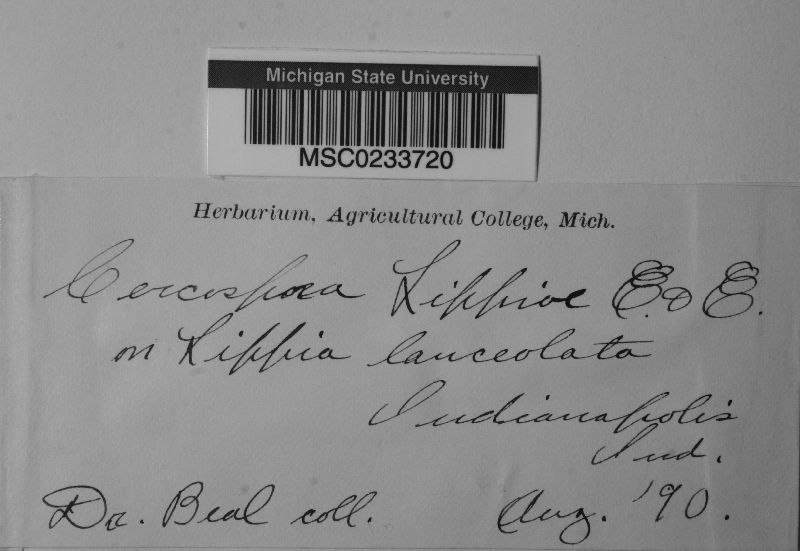 Michigan State University
MSC0233720
Herbarium, Agricultural College, Mich.
Cercospora Lippiae E. & E.
on Lippia lanceolata
Indianapolis
Ind.
Dr. Beal coll. Aug. '90.